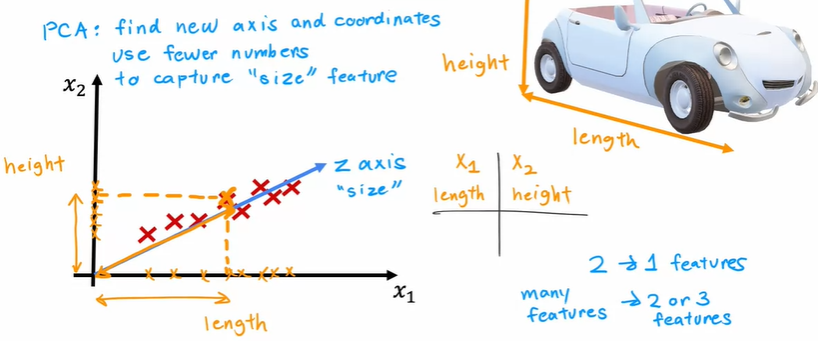 PCA: find new axis and coordinates
use fewer numbers
to capture "size" feature
x₂
height
z axis
"size"
x₁
length
height
length
x₁ x₂
length height
2 → 1 features
many features → 2 or 3 features